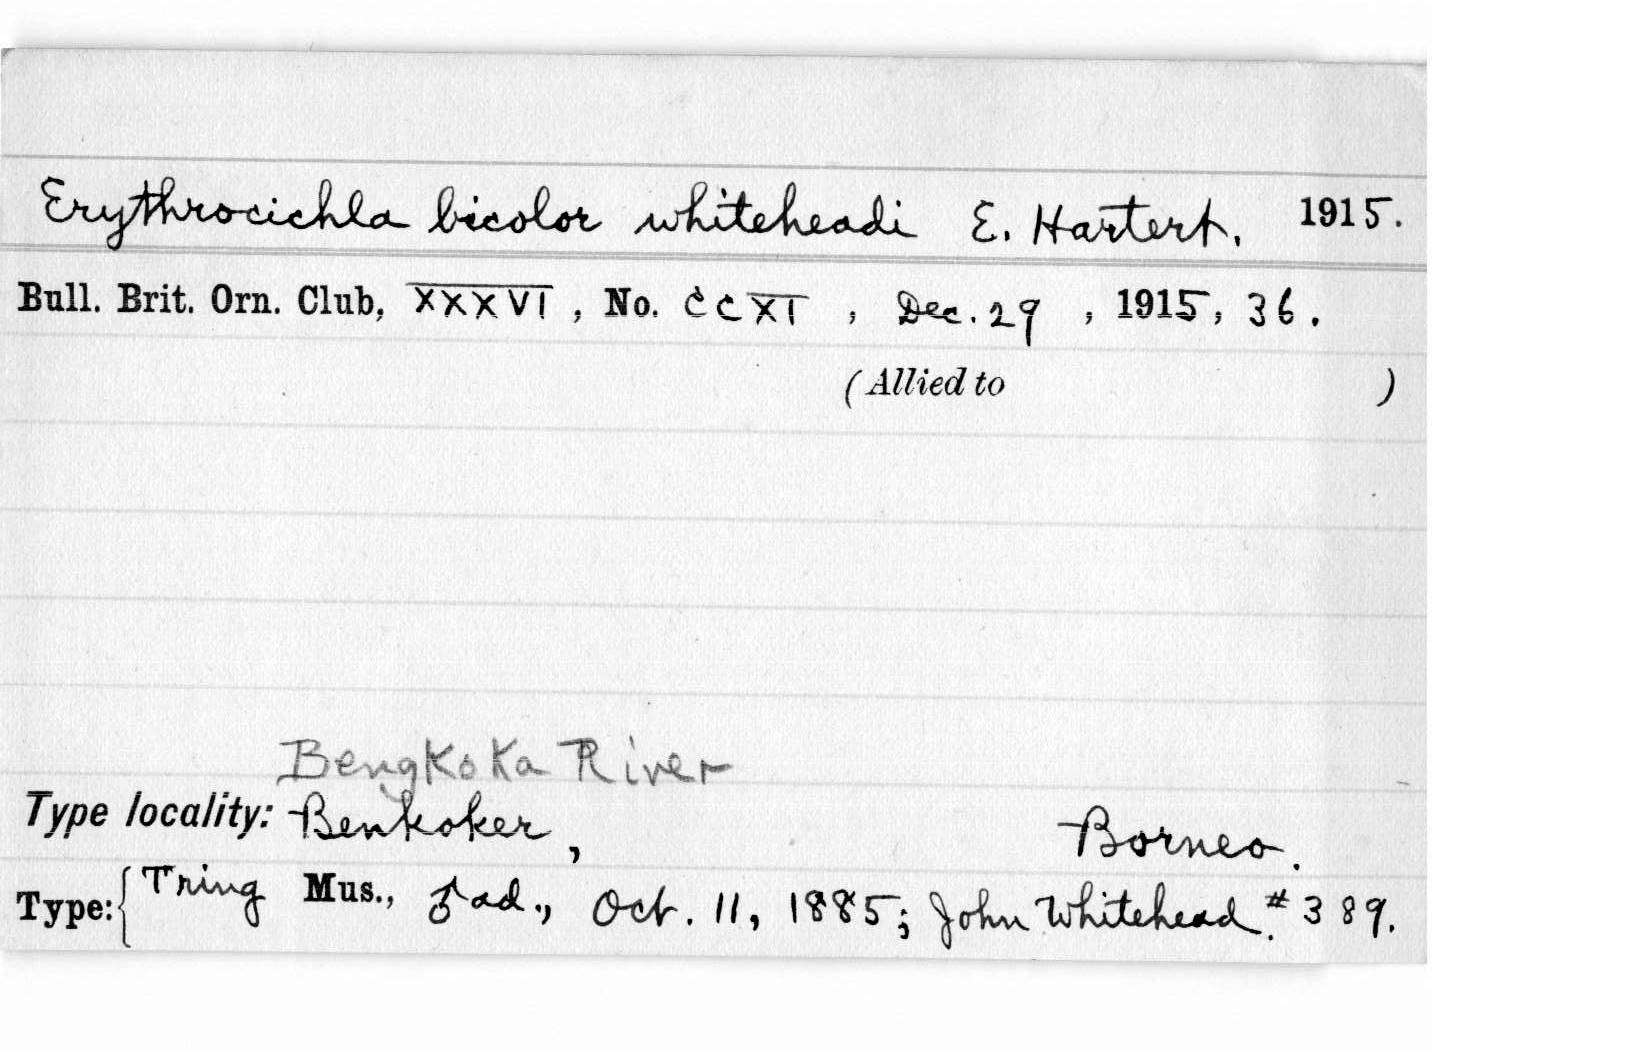 Erythrocichla bicolor whiteheadi E. Hartert. 1915.
Bull. Brit. Orn. Club, XXXVI, No. CCXI, Dec. 29, 1915, 36.
(Allied to )
Bengkoka River
Type locality: Benkoker, Borneo.
Type: { Tring Mus., ♂ ad., Oct. 11, 1885; John Whitehead. # 389.